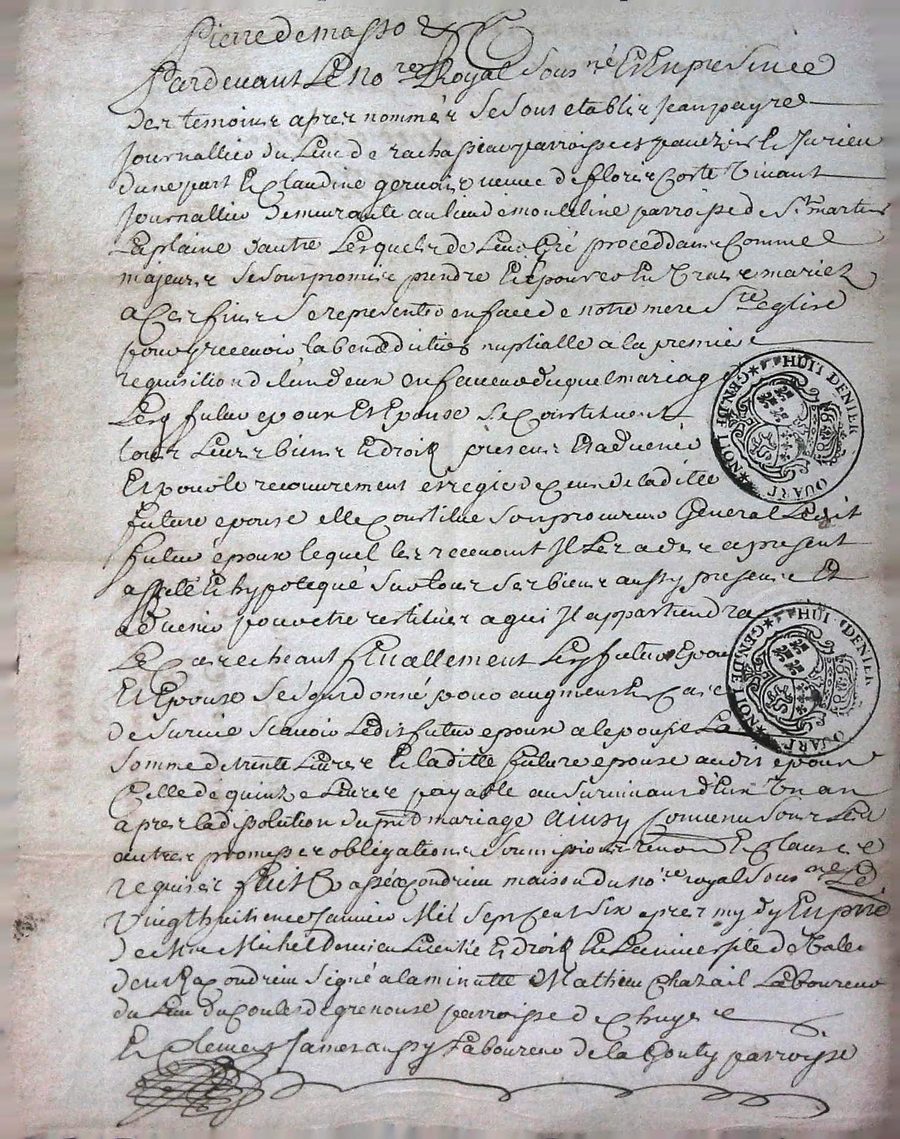 Pierre de masso &
Pardevant Le No.re Royal sous.né Et En presence
Des temoins apres nommés se sont etablis Jean payre
Journallier du Lieu de parroisse et
d'une part Et Claudine gervais veuve de fleurie vivant
Journallier demeurante au lieu de parroisse de St. martin
La plaine d'autre Lesquels de Leur gré proceddans Comme
majeurs se sont promis prendre Et Epouser En vrays mariez
a Ces fins se representer en face de notre mere Ste. Eglise
pour y recevoir la benediction nuptialle a la premiere
requisition de l'un deux en faveur duquel mariage
Lesd. futur epoux Et Epouse se Constituent
tous Leurs biens Et droits presens Et advenir
Et pour le recouvrement et regie de Ceux de ladite
future epouse elle Constitue son procureur General Ledit
futur epoux lequel les recevant Il Les a des a present
assuré Et hypotequé sur tous ses biens aussy presens Et
advenir pour etre restitués a qui Il appartiendra
Le Cas echeant finallement Lesd. futur Epoux
Et Epouse se sont donné pour augment En Cas
de survie scavoir Ledit futur epoux a l'epouse La
somme de trente Livres Et laditte future epouse audit epoux
Celle de quinze Livres payable au survivant d'Eux Un an
apres la dissolution du pnt. mariage Ainsy Convenu sous Les
autres promesses obligations soumissions renon. Et Clauses
requises fait Et a Condrieu maison du No.re royal sous.né Le
Vingt huitieme Janvier Mil Sept Cent Six apres mydy En pnce
de Mre Michel Licentié Es droits En L'université de
Condrieu signé a la minutte Mathieu Chazail Laboureur
du Lieu du parroisse de Chuyes
Et Clement James aussy Laboureur de la parroisse
GEN. DE LION
HUIT DENIER
QUART
GEN. DE LION
HUIT DENIER
QUART